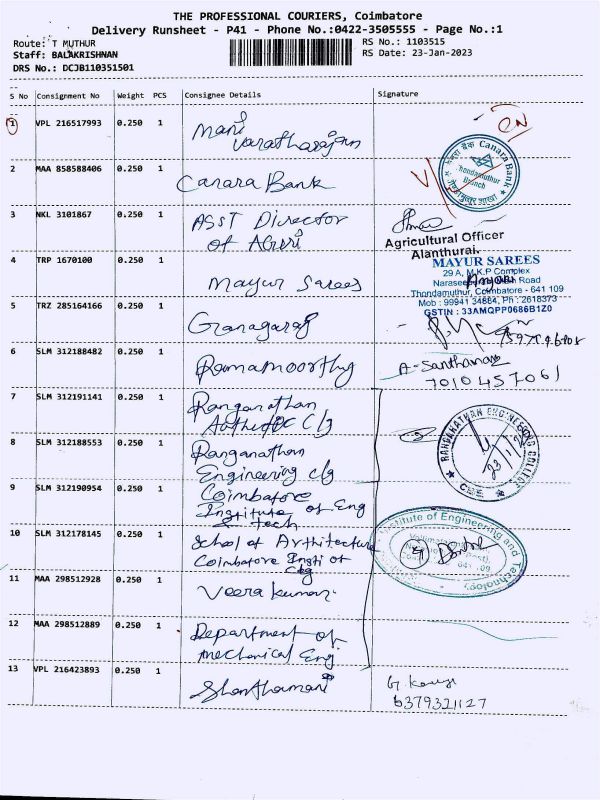 THE PROFESSIONAL COURIERS, Coimbatore
Delivery Runsheet - P41 - Phone No.:0422-3505555 - Page No.:1
Route: T MUTHUR
RS No.: 1103515
Staff: BALAKRISHNAN
RS Date: 23-Jan-2023
DRS No.: DCJB110351501
S No Consignment No Weight PCS Consignee Details Signature
1 VPL 216517993 0.250 1 Mani
Varatharajan
2 MAA 858588406 0.250 1 Canara Bank
Canara Bank
Thondamuthur
Branch
3 NKL 3101867 0.250 1 ASST Director
of AGRRI
Agricultural Officer
Alanthurai.
4 TRP 1670100 0.250 1 Mayur Sarees
MAYUR SAREES
29 A, M.K.P Complex
Road
Thondamuthur, Coimbatore - 641 109
Mob : 99941 34664, Ph : 2618373
GSTIN : 33AMQPP0686B1Z0
5 TRZ 285164166 0.250 1
6 SLM 312188482 0.250 1 Ramamoorthy
A-Santhanam
7010457061
7 SLM 312191141 0.250 1 Ranganathan
Clg
8 SLM 312188553 0.250 1 Ranganathan
Engineering clg
RANGANATHAN ENGINEERING COLLEGE
9 SLM 312190954 0.250 1 Coimbatore
Institute of Eng
tech
10 SLM 312178145 0.250 1 School of Arthitecture
Coimbatore Insti of
Institute of Engineering and Technology
11 MAA 298512928 0.250 1 Veera kumar
12 MAA 298512889 0.250 1 Department of
mechanical Eng
13 VPL 216423893 0.250 1 Shanthamani
6379321127